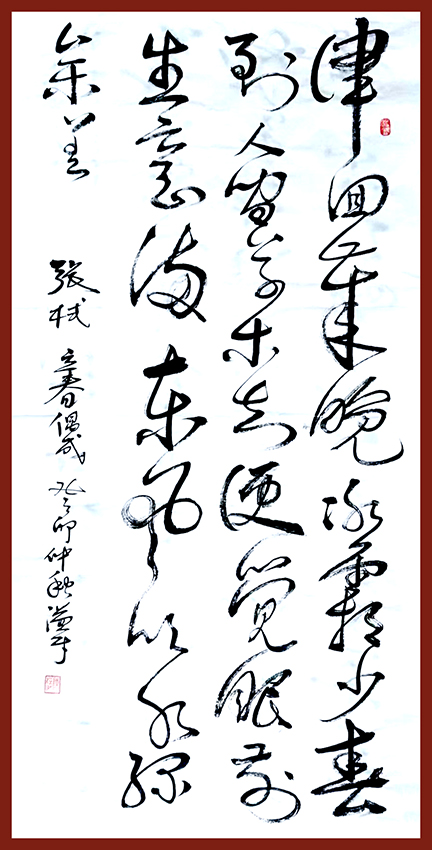 律回岁晚冰霜少春
到人间草木知便觉眼前
生意满东风吹水绿
参差 张栻 立春偶成 癸卯仲秋